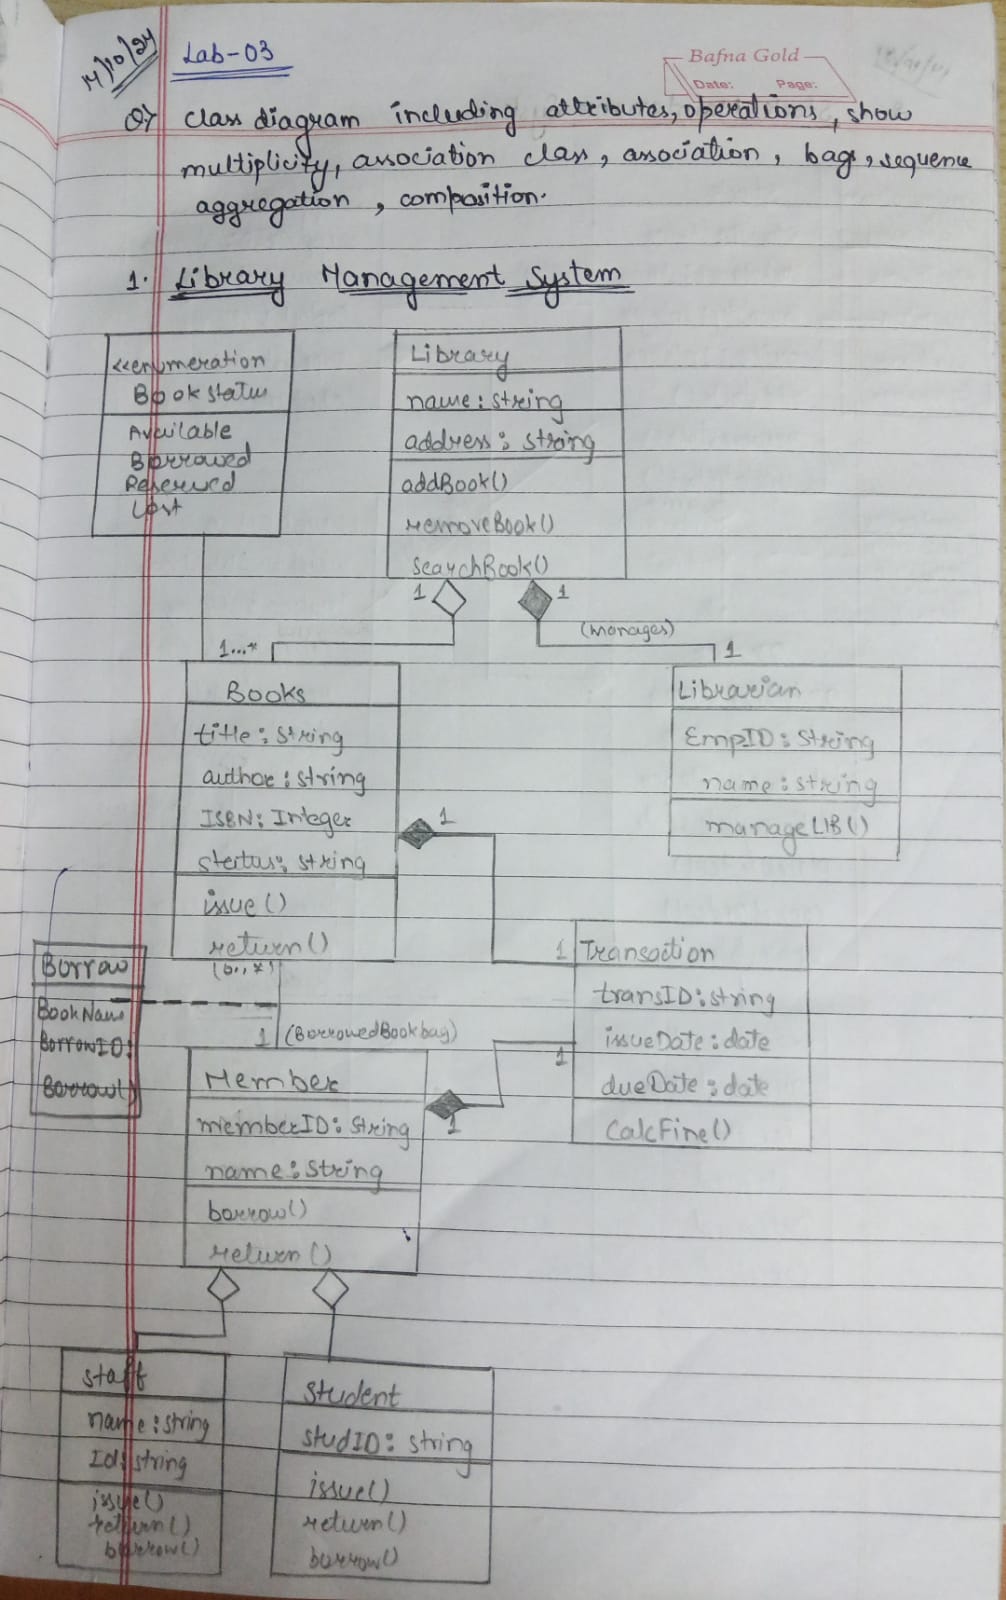 14/10/24
Lab-03
Bafna Gold
Date: Page:
Q) Class diagram including attributes, operations, show
multiplicity, association class, association, bags, sequence
aggregation, composition.
1. Library Management System
<<enumeration
Book status
Available
Borrowed
Reserved
Lost
Library
name: string
address: string
addBook()
removeBook()
searchBook()
1
1
(manages)
1...*
1
Books
title: string
author: string
ISBN: Integer
status: string
issue()
return()
Librarian
EmpID: String
name: string
manageLIB()
1
(0..*)
1
Transaction
transID: string
issueDate: date
dueDate: date
CalcFine()
Borrow
BookName
BorrowID:
Borrow()
1 (BorrowedBookbag)
1
Member
memberID: String
name: String
borrow()
return()
1
Staff
name: string
Id: string
issue()
return()
borrow()
Student
studID: string
issue()
return()
borrow()